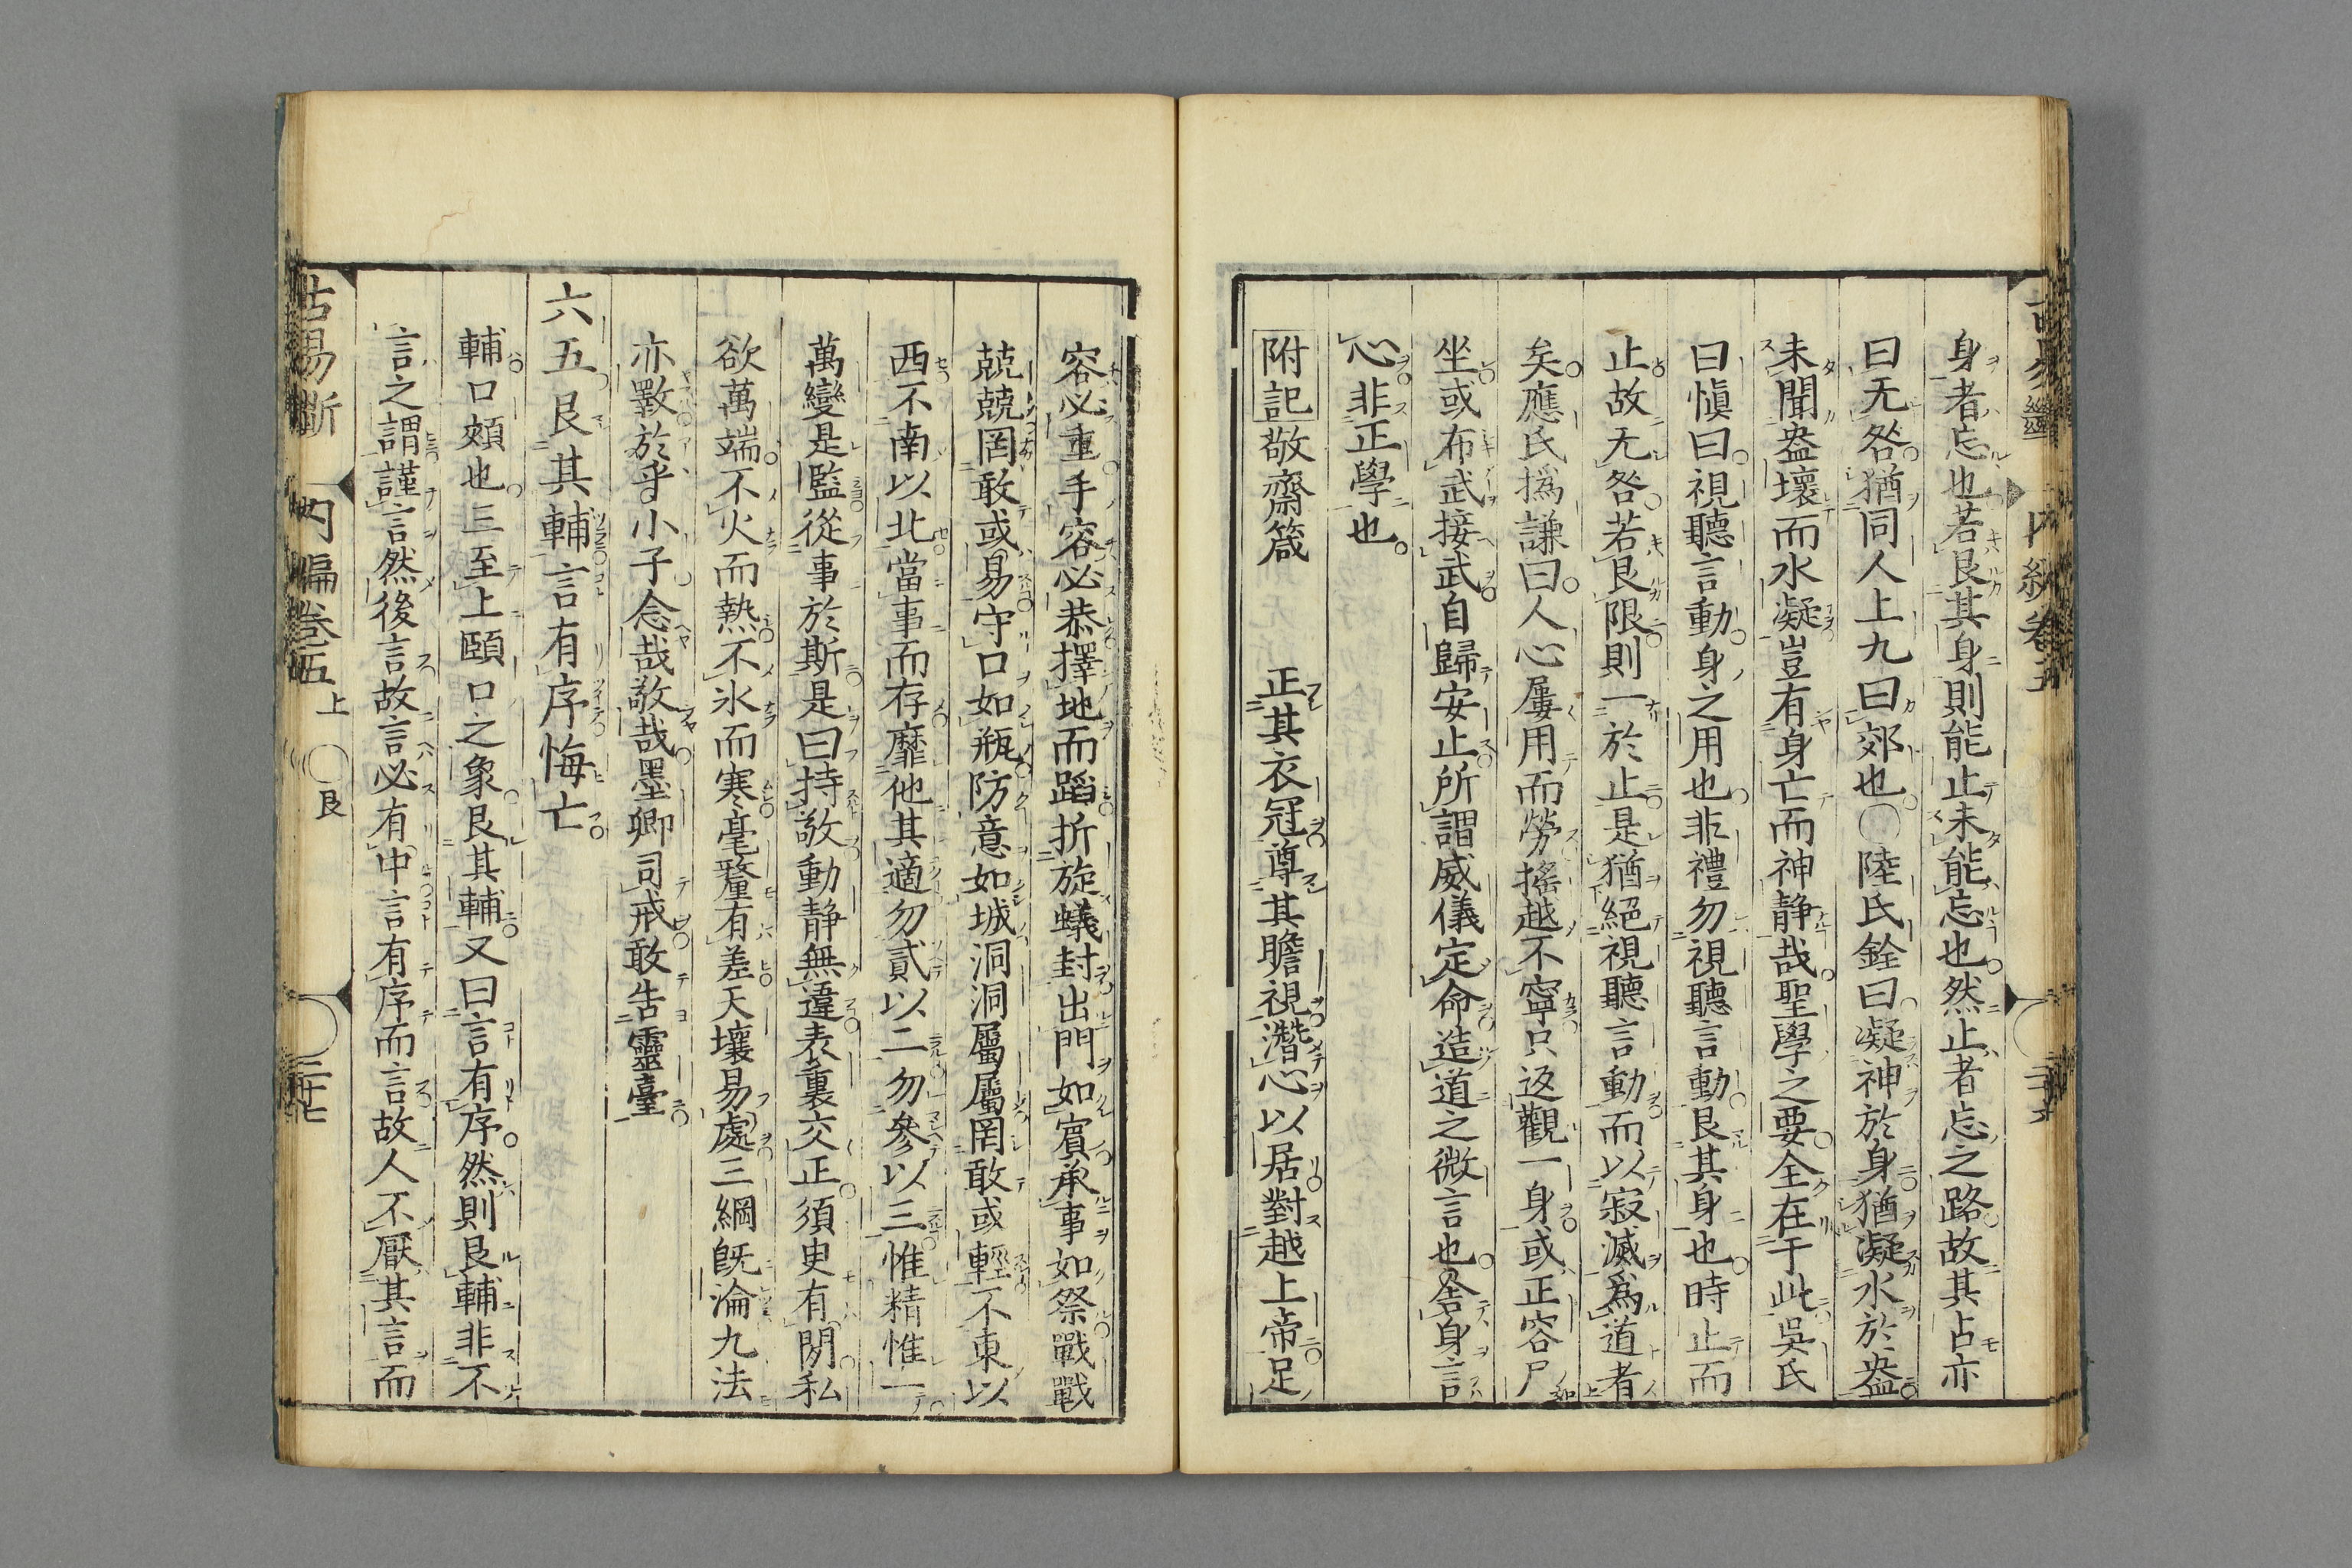 身者忘也若艮其身則能止未能忘也然止者忘之路故其占亦
曰无咎猶同人上九曰郊也〇陸氏銓曰凝神於身猶凝水於盎
未聞盎壞而水凝豈有身亡而神静哉聖學之要全在于此吳氏
曰愼曰視聽言動身之用也非禮勿視聽言動艮其身也時止而
止故无咎若艮限則一於止是猶絕視聽言動而以寂滅爲道者
矣應氏撝謙曰人心屢用而勞搖越不寧只返觀一身或正容尸
坐或布武接武自歸安止所謂威儀定命造道之微言也舍身言
心非正學也
附記敬齋箴　正其衣冠尊其瞻視潛心以居對越上帝足
容必重手容必恭擇地而蹈折旋蟻封出門如賓承事如祭戰戰
兢兢罔敢或易守口如瓶防意如城洞洞屬屬罔敢或輕不東以
西不南以北當事而存靡他其適勿貳以二勿參以三惟精惟一
萬變是監從事於斯是曰持敬動静無違表裏交正須臾有閒私
欲萬端不火而熱不氷而寒毫釐有差天壤易處三綱旣淪九法
亦斁於乎小子念哉敬哉墨卿司戒敢告靈臺
六五艮其輔言有序悔亡
輔口頰也三至上頤口之象艮其輔又曰言有序然則艮輔非不
言之謂謹言然後言故言必有中言有序而言故人不厭其言而
古易斷　內編卷五上　〇艮　二十七